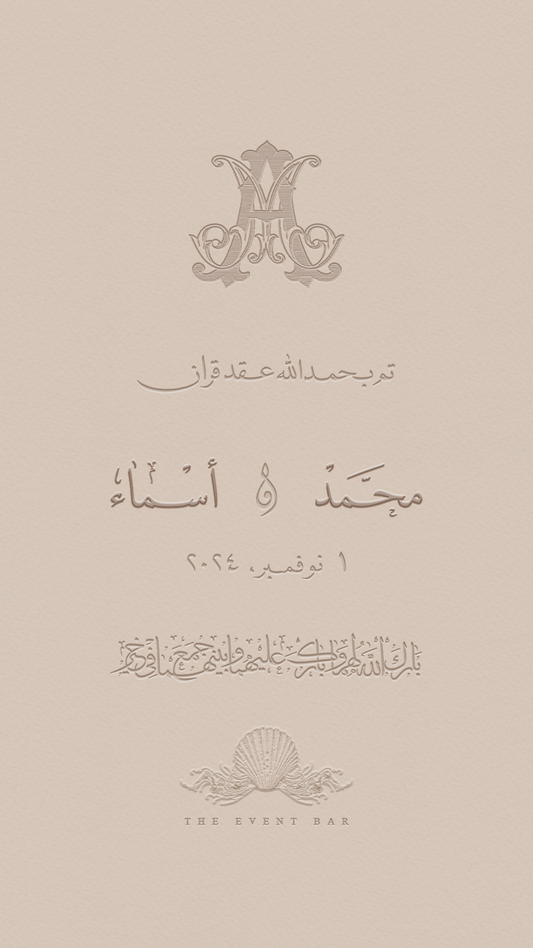 تم بحمد الله عقد قران
محمّد و أسماء
١ نوفمبر، ٢٠٢٤
بارك الله لهما وبارك عليهما وجمع بينهما في خير
THE EVENT BAR